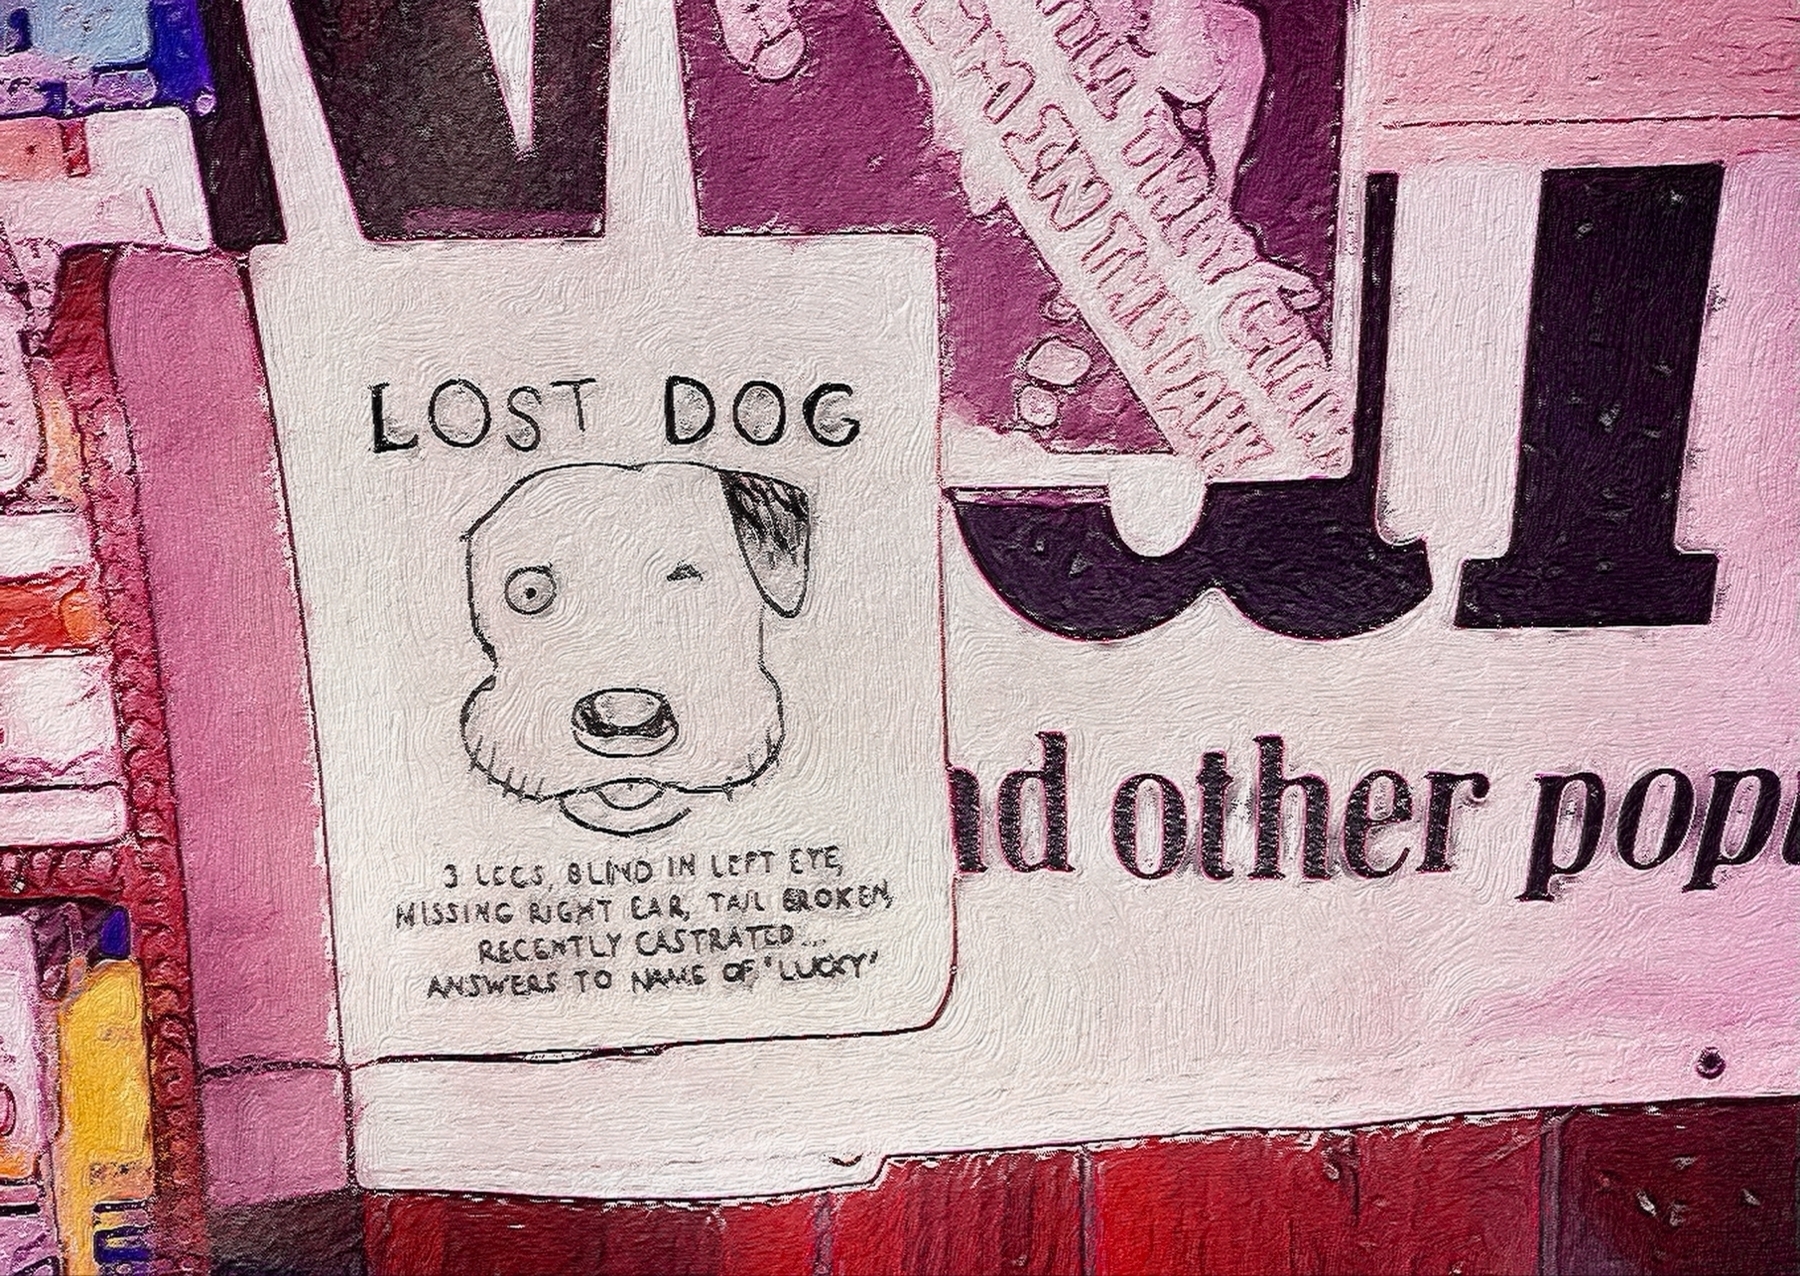 LOST DOG
3 LEGS, BLIND IN LEFT EYE,
MISSING RIGHT EAR, TAIL BROKEN,
RECENTLY CASTRATED...
ANSWERS TO NAME OF "LUCKY"
nd other popu